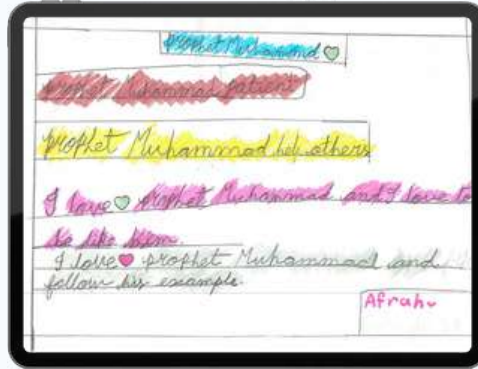 prophet Muhammad
prophet Muhammad patient
prophet Muhammad help others
I love prophet Muhammad and I love to
be like him.
I love prophet Muhammad and
follow his example.
Afrah